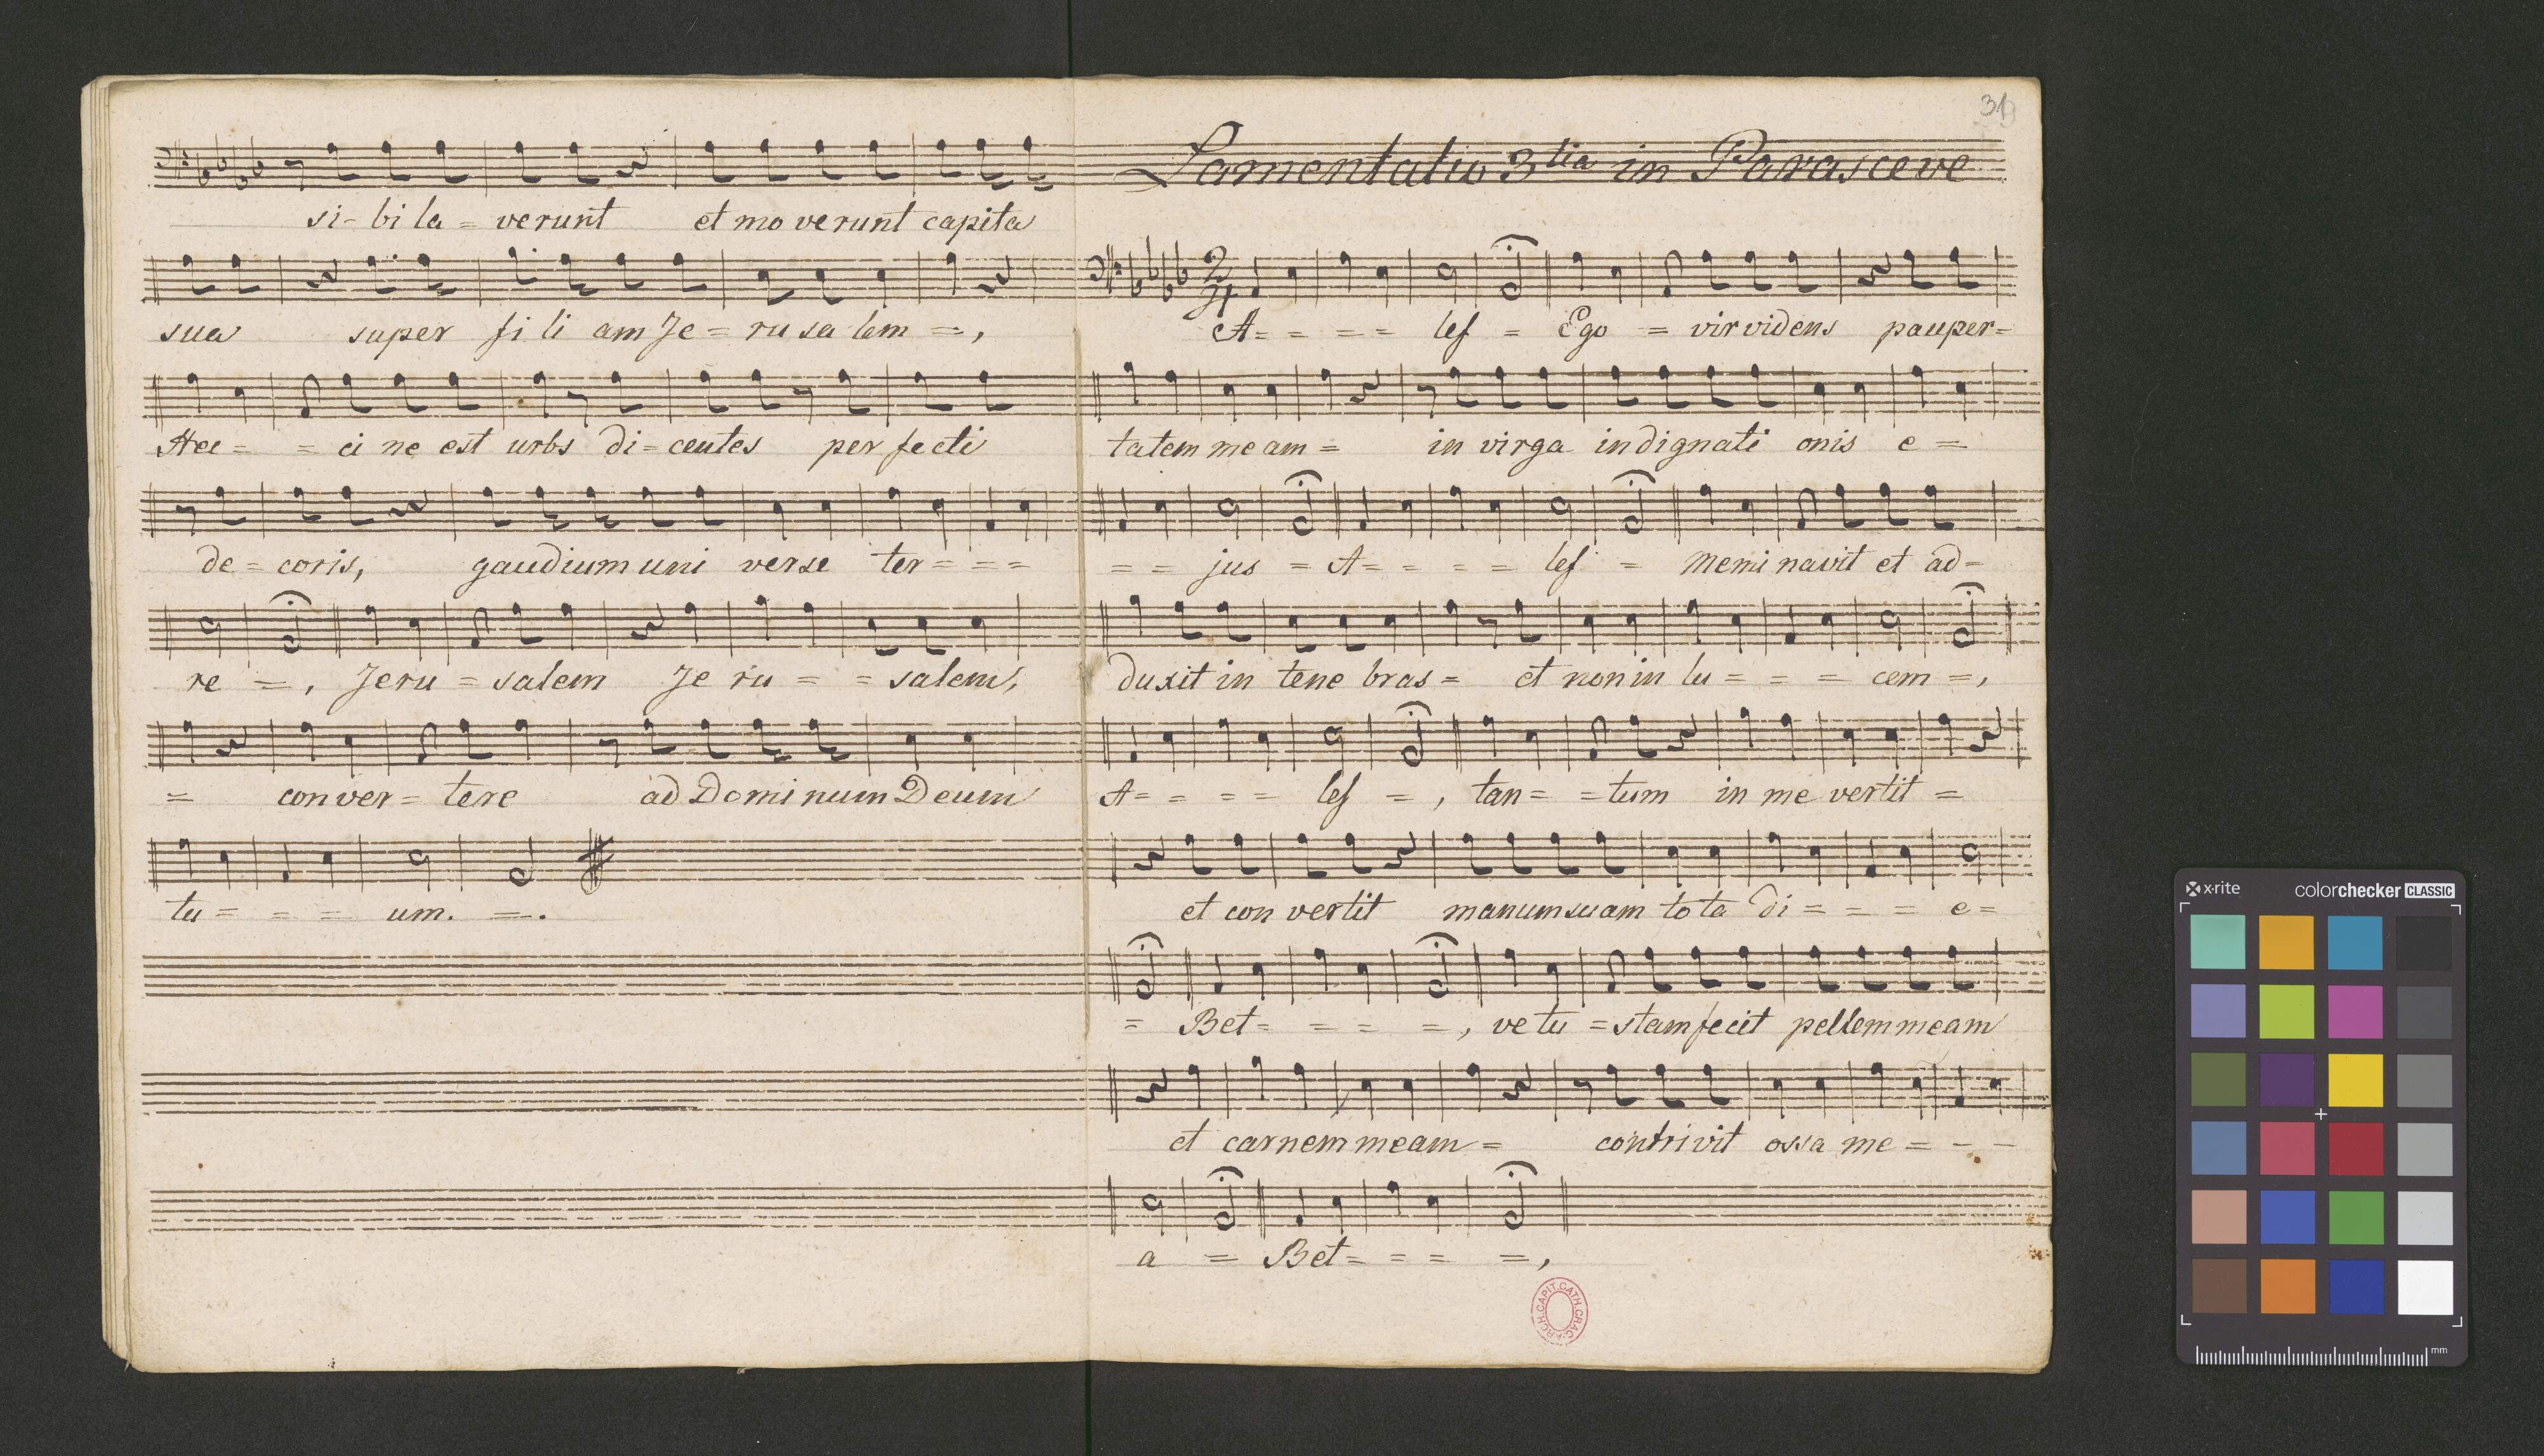 si- bi la = verunt et mo verunt capita
sua super fi li am Je = ru sa lem =,
Hec = = ci ne est urbs di = centes per fecti
de = coris, gaudium uni verse ter = = =
re =, Jeru = salem Je ru = = salem,
= conver = tere ad Dominum Deum
tu = = = um. =.
31
Lamentatio 3tia in Parasceve
2/4
A = = = = lef = Ego = vir videns pauper=
tatem me am = in virga indignati onis e =
= = jus = A = = = = lef = Memi navit et ad=
duxit in tene bras = et non in lu = = = cem =,
A = = = = lef =, tan = = tum in me vertit =
et con vertit manum suam to ta di = = = e =
= Bet = = = =, ve tu = stam fecit pellem meam
et carnem meam = contrivit ossa me = - -
a = Bet = = = =,
ARCH. CAPIT. CATH. CRAC.
x-rite colorchecker CLASSIC
mm